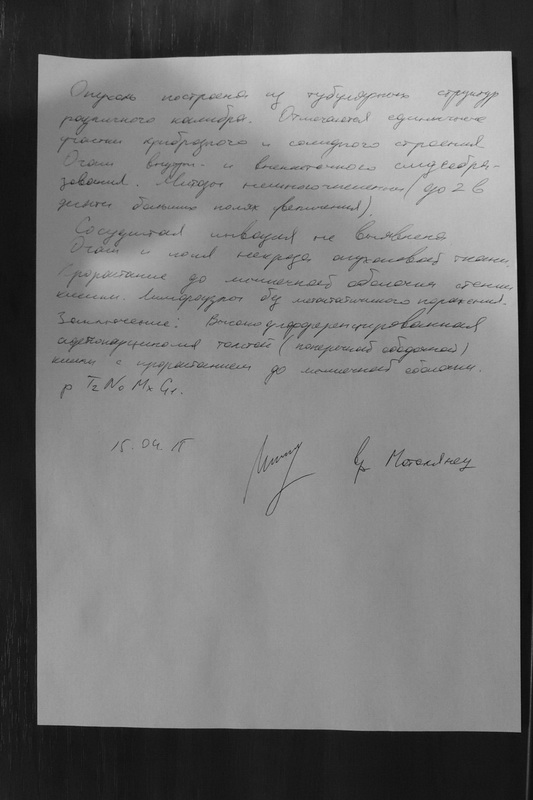 Опухоль построена из тубулярных структур
различного калибра. Отмечаются единичные
участки криброзного и солидного строения
Очаги внутри- и внеклеточного слизеобра-
зования. Митозы немногочисленны (до 2 в
десяти больших полях увеличения).
Сосудистая инвазия не выявлена
Очаги и поля некроза опухолевой ткани.
Прорастание до мышечной оболочки стенки
кишки. Лимфоузлы без метастатического поражения.
Заключение: Высокодифференцированная
аденокарцинома толстой (поперечной ободочной)
кишки с прорастанием до мышечной оболочки.
p T2 N0 Mx G1.
15.04.15